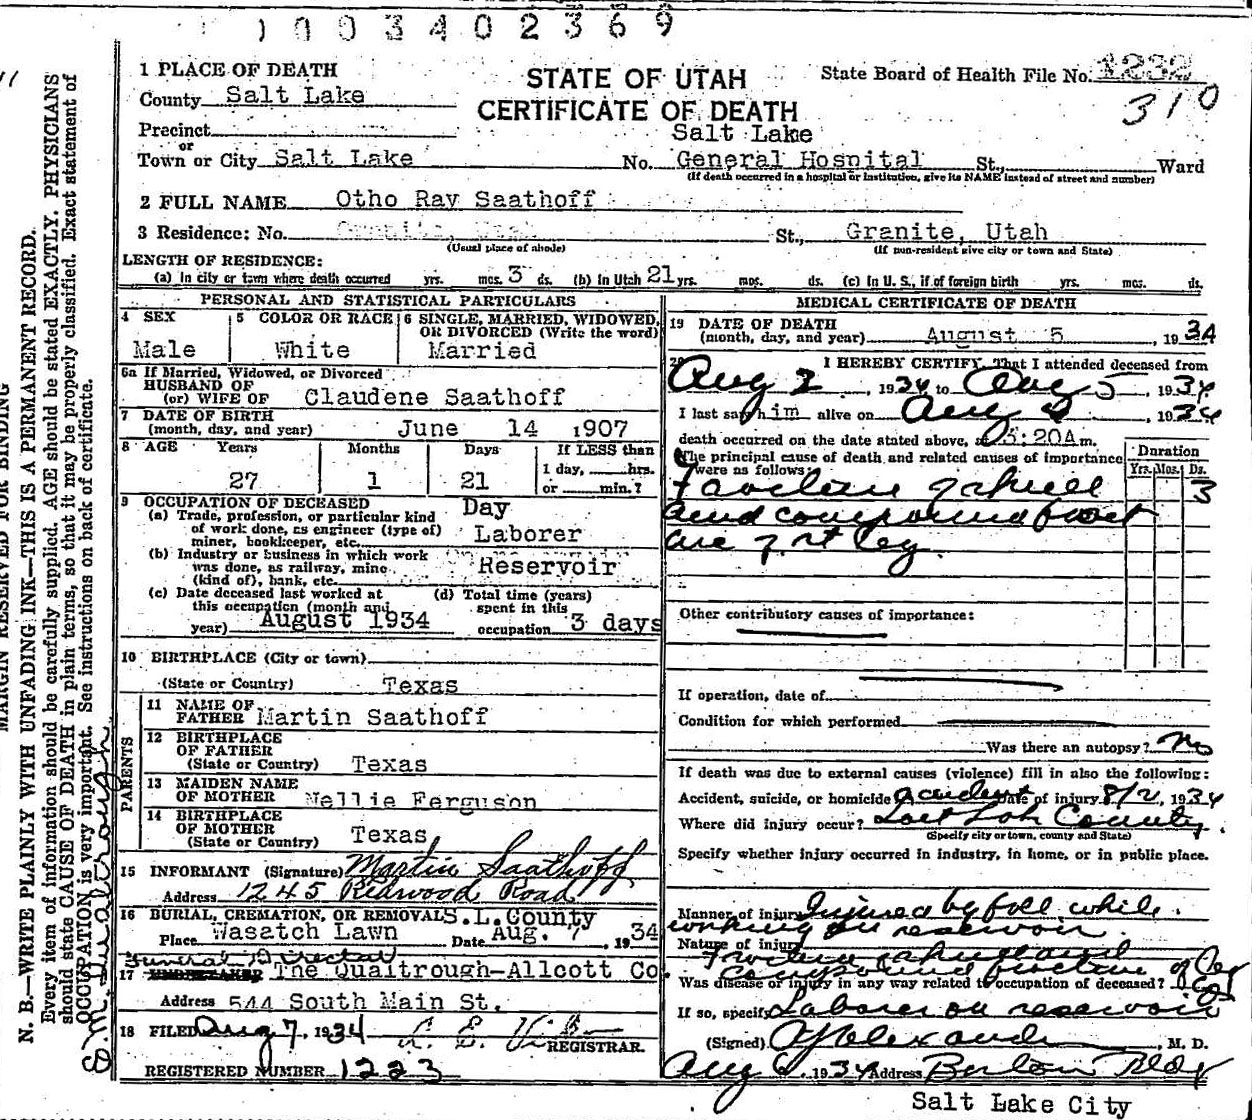 1003402369
1 PLACE OF DEATH
STATE OF UTAH
CERTIFICATE OF DEATH
State Board of Health File No. 1232
310
County Salt Lake
Precinct
or
Town or City Salt Lake No. Salt Lake General Hospital St., Ward
(If death occurred in a hospital or institution, give its NAME instead of street and number)
2 FULL NAME Otho Ray Saathoff
3 Residence: No. Granite, Utah St., Granite, Utah
(Usual place of abode) (If non-resident give city or town and State)
LENGTH OF RESIDENCE:
(a) In city or town where death occurred yrs. mos. 3 ds. (b) In Utah 21 yrs. mos. ds. (c) In U. S., if of foreign birth yrs. mos. ds.
PERSONAL AND STATISTICAL PARTICULARS
4 SEX
Male
5 COLOR OR RACE
White
6 SINGLE, MARRIED, WIDOWED, OR DIVORCED (Write the word)
Married
6a If Married, Widowed, or Divorced
HUSBAND OF
(or) WIFE OF Claudene Saathoff
7 DATE OF BIRTH
(month, day, and year) June 14 1907
8 AGE Years Months Days If LESS than
27 1 21 1 day, hrs.
or min.?
9 OCCUPATION OF DECEASED
(a) Trade, profession, or particular kind of work done, as engineer (type of) miner, bookkeeper, etc. Day Laborer
(b) Industry or business in which work was done, as railway, mine (kind of), bank, etc. Reservoir
(c) Date deceased last worked at this occupation (month and year) August 1934
(d) Total time (years) spent in this occupation 3 days
10 BIRTHPLACE (City or town)
(State or Country) Texas
PARENTS
11 NAME OF FATHER Martin Saathoff
12 BIRTHPLACE OF FATHER
(State or Country) Texas
13 MAIDEN NAME OF MOTHER Nellie Ferguson
14 BIRTHPLACE OF MOTHER
(State or Country) Texas
15 INFORMANT (Signature) Martin Saathoff
Address 1245 Redwood Road
16 BURIAL, CREMATION, OR REMOVAL S.L. County
Place Wasatch Lawn Date Aug. 7, 1934
Funeral Director
17 UNDERTAKER The Qualtrough-Allcott Co.
Address 544 South Main St.
18 FILED Aug 7, 1934
REGISTRAR.
REGISTERED NUMBER 1223
MEDICAL CERTIFICATE OF DEATH
19 DATE OF DEATH
(month, day, and year) August 5, 1934
20 I HEREBY CERTIFY, That I attended deceased from
Aug 2, 1934 to Aug 5, 1934.
I last saw him alive on Aug 4, 1934
death occurred on the date stated above, at 5:20A m.
The principal cause of death and related causes of importance were as follows:
Duration
Yrs. Mos. Ds.
3
Fracture of skull
and compound fract
ure of rt leg.
Other contributory causes of importance:
If operation, date of
Condition for which performed
Was there an autopsy? No
If death was due to external causes (violence) fill in also the following:
Accident, suicide, or homicide accident Date of injury 8/2, 1934
Where did injury occur? Salt Lake County.
(Specify city or town, county and State)
Specify whether injury occurred in industry, in home, or in public place.
Manner of injury Injured by fall while
working on reservoir.
Nature of injury
Fracture of skull and
compound fracture of leg
Was disease or injury in any way related to occupation of deceased? yes
If so, specify Laborer on reservoir
(Signed) , M. D.
Aug 6, 1934 Address Boston Bldg
Salt Lake City
MARGIN RESERVED FOR BINDING
N. B.—WRITE PLAINLY WITH UNFADING INK—THIS IS A PERMANENT RECORD.
Every item of information should be carefully supplied. AGE should be stated EXACTLY. PHYSICIANS
should state CAUSE OF DEATH in plain terms, so that it may be properly classified. Exact statement of
OCCUPATION is very important. See instructions on back of certificate.